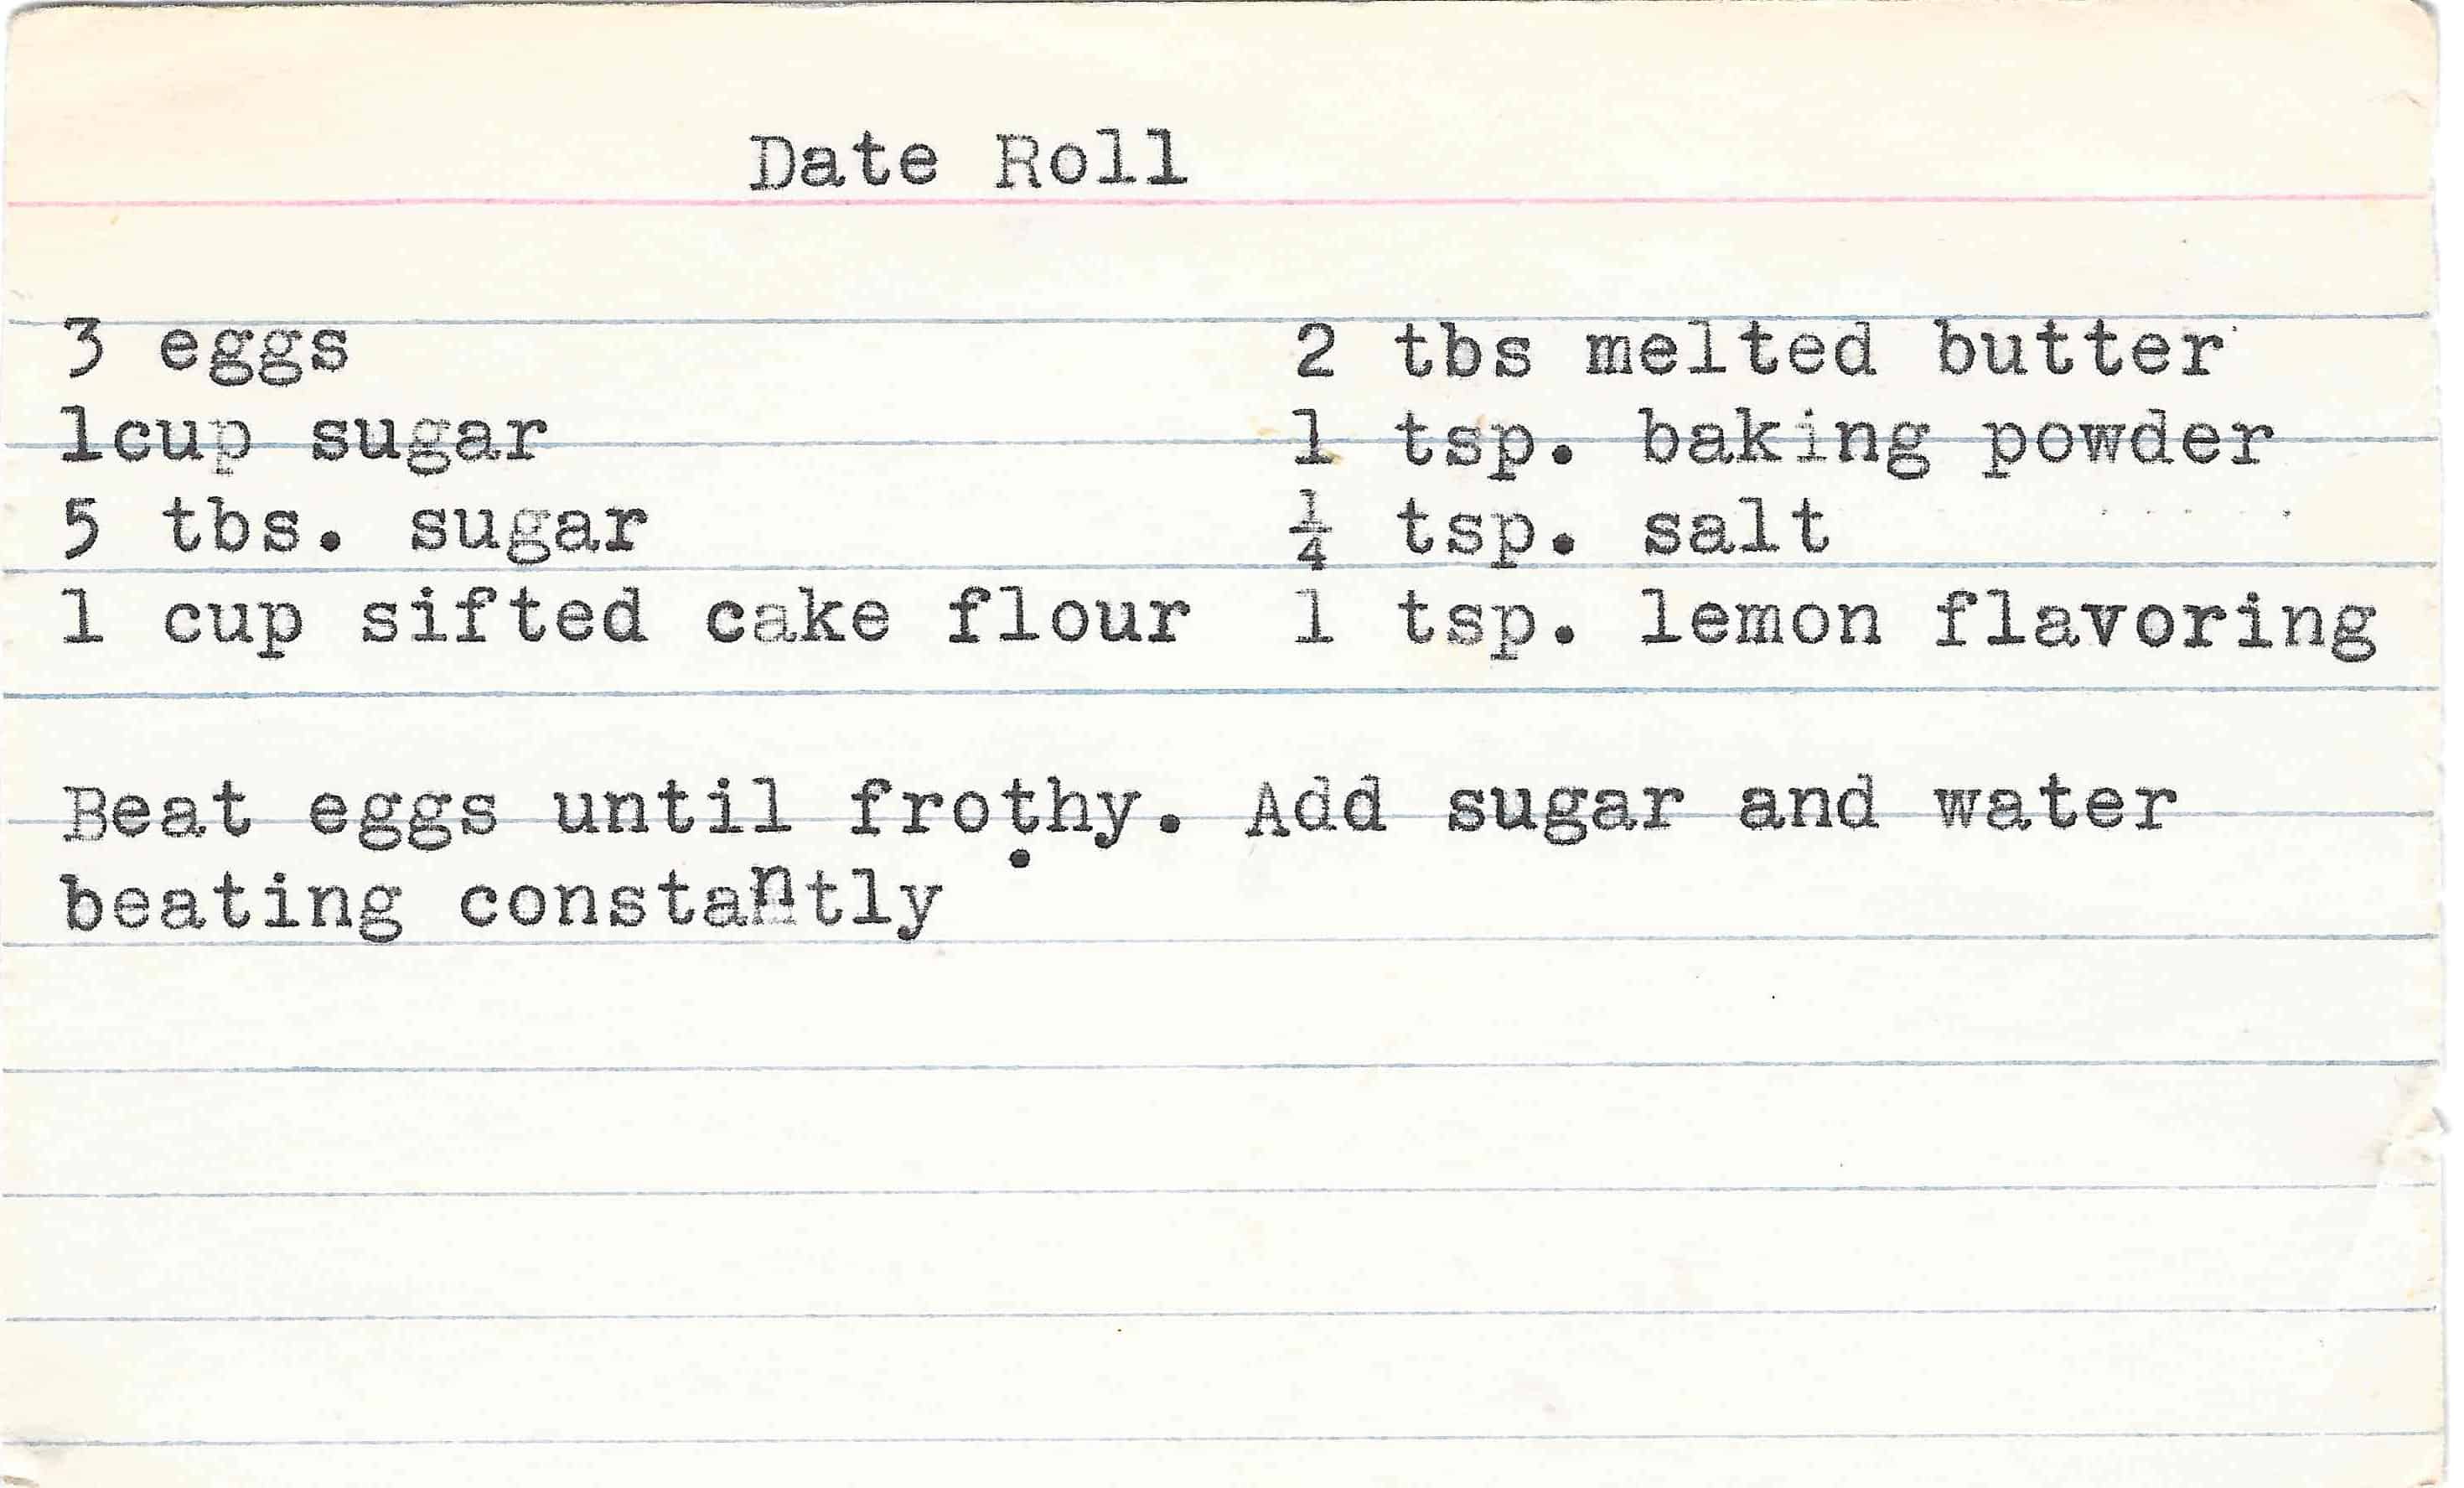 Date Roll
3 eggs 2 tbs melted butter
1cup sugar 1 tsp. baking powder
5 tbs. sugar ¼ tsp. salt
1 cup sifted cake flour 1 tsp. lemon flavoring
Beat eggs until frothy. Add sugar and water
beating constantly.